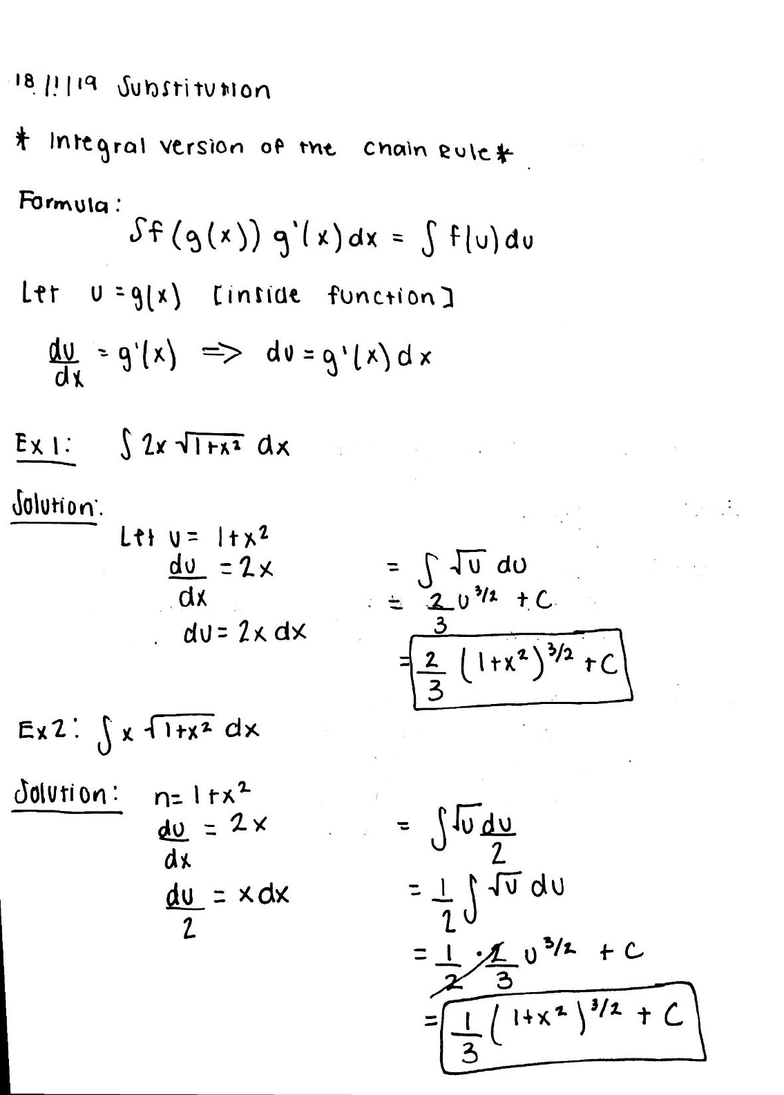 18/11/19 Substitution
* Integral version of the Chain Rule *
Formula:
∫f(g(x)) g'(x) dx = ∫ f(u) du
Let u = g(x) [inside function]
du/dx = g'(x) => du = g'(x) dx
Ex 1: ∫ 2x √(1+x²) dx
Solution:
Let u = 1+x²
du/dx = 2x
du = 2x dx
= ∫ √u du
= 2/3 u^3/2 + C
= 2/3 (1+x²)^3/2 + C
Ex2: ∫ x √(1+x²) dx
Solution: n = 1+x²
du/dx = 2x
du/2 = x dx
= ∫ √u du/2
= 1/2 ∫ √u du
= 1/2 · 2/3 u^3/2 + C
= 1/3 (1+x²)^3/2 + C